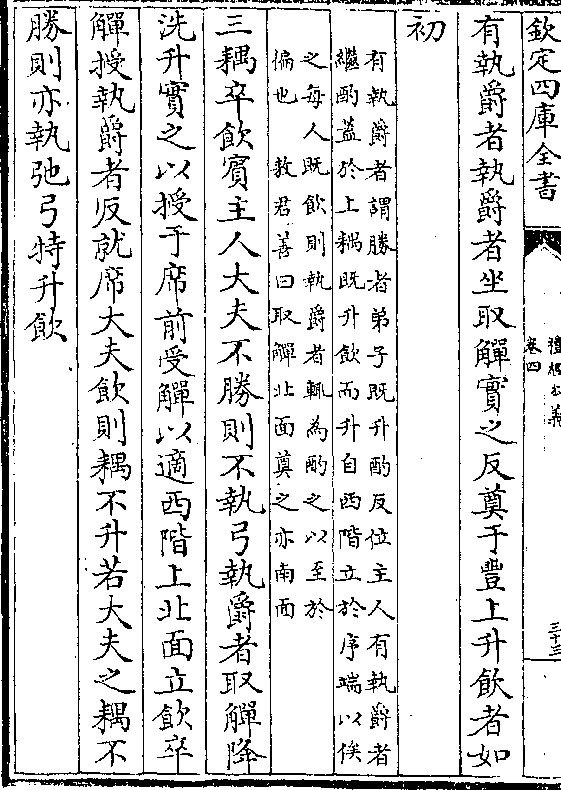 欽定四庫全書
卷四
三十三
有執爵者執爵者坐取觶實之反奠于豐上升飲者如
初
有執爵者謂勝者弟子既升酌反位主人有執爵者
繼酌蓋於上耦既升飲而升自西階立於序端以俟
之每人既飲則執爵者輒為酌之以至於
徧也　敖君善曰取觶北面奠之亦南面
三耦卒飲賓主人大夫不勝則不執弓執爵者取觶降
洗升實之以授于席前受觶以適西階上北面立飲卒
觶授執爵者反就席大夫飲則耦不升若大夫之耦不
勝則亦執弛弓特升飲